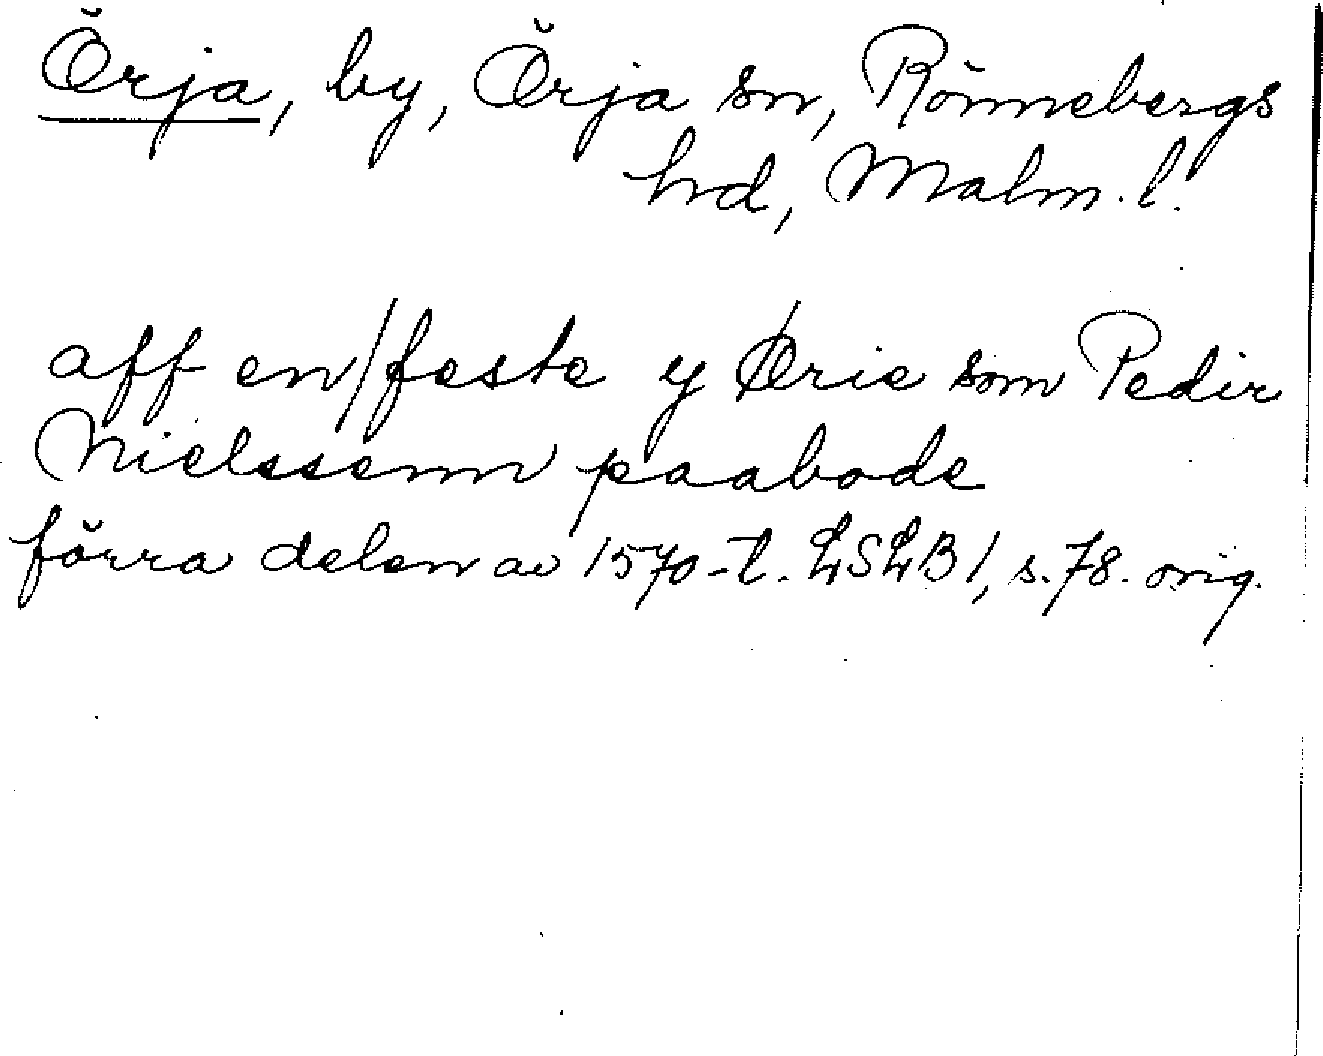 Örja, by, Örja sn, Rönnebergs
hd, Malm. l.
aff en/feste y Ørie som Pedir
Nielssenn paabode
förra delen av 1570-t. LSLB 1, s. 78. orig.